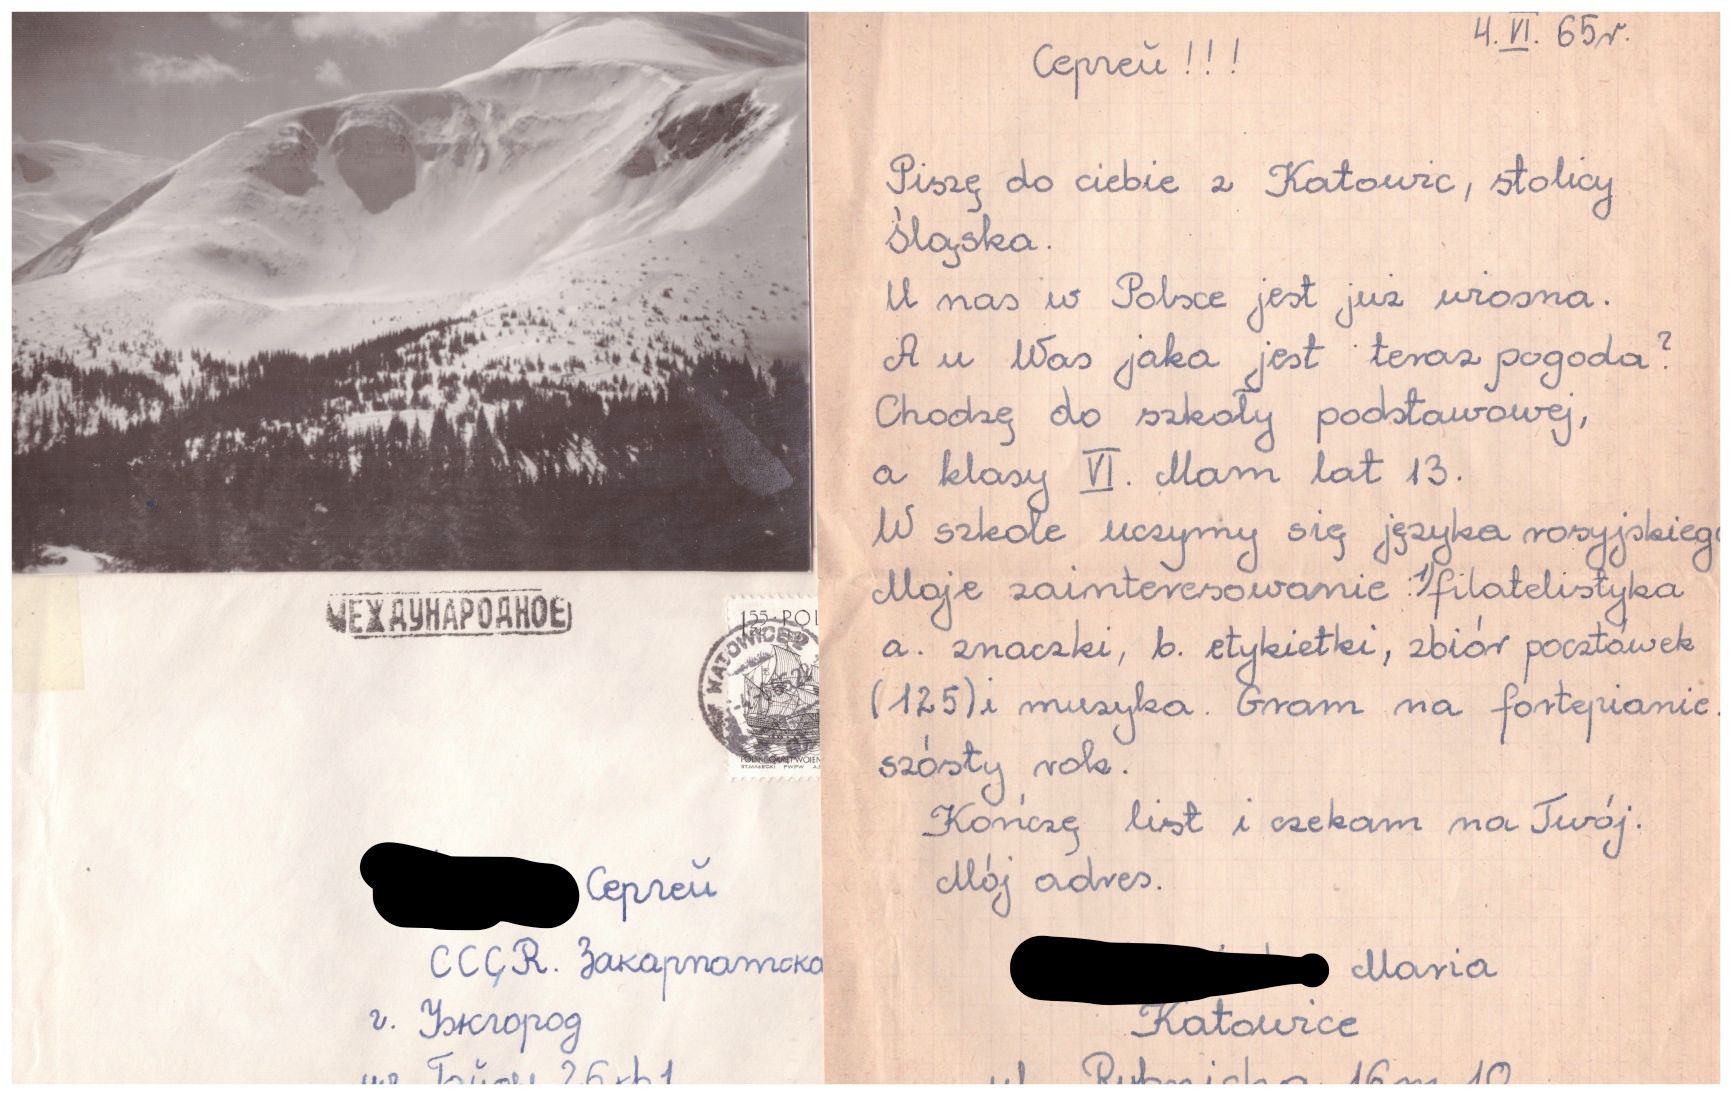 МЕЖДУНАРОДНОЕ
1 55 POL
KATOWICE 2
Сергей
СССR. Закарпатска
г. Ужгород
4. VI. 65r.
Сергей!!!
Piszę do ciebie z Katowic, stolicy
Śląska.
U nas w Polsce jest już wiosna.
A u Was jaka jest teraz pogoda?
Chodzę do szkoły podstawowej,
a klasy VI. Mam lat 13.
W szkole uczymy się języka rosyjskiego
Moje zainteresowanie: 1) filatelistyka
a. znaczki, b. etykietki, zbiór pocztówek
(125) i muzyka. Gram na fortepianie.
szósty rok.
Kończę list i czekam na Twój.
Mój adres.
Maria
Katowice
ul. Rybnicka 16 m 10